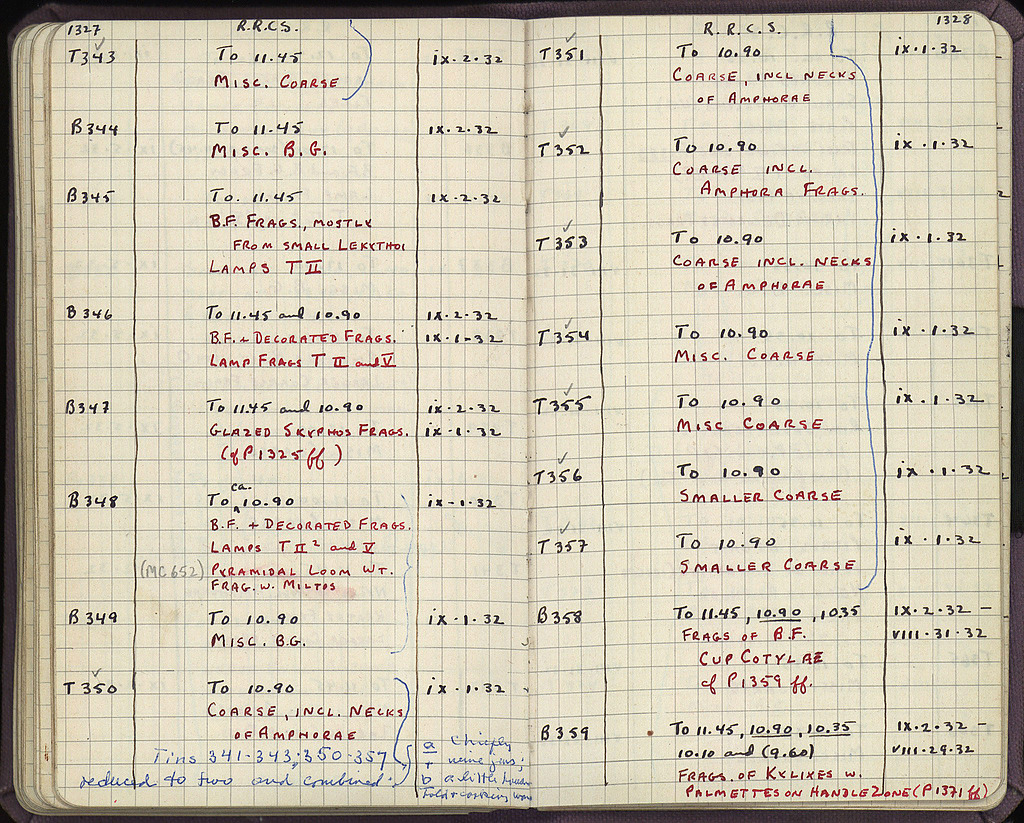 1327
R.R.C.S.
T343 To 11.45 ix.2.32
Misc. Coarse
B344 To 11.45 ix.2.32
Misc. B.G.
B345 To. 11.45 ix.2.32
B.F. Frags., mostly
from small Lekythoi
Lamps T II
B346 To 11.45 and 10.90 ix.2.32
B.F. + Decorated Frags. ix.1-32
Lamp Frags T II and V
B347 To 11.45 and 10.90 ix.2.32
Glazed Skyphos Frags. ix.1.32
(cf P1325 ff)
ca.
B348 To 10.90 ix-1.32
B.F. + Decorated Frags.
Lamps T II² and V
(MC652) Pyramidal Loom Wt.
Frag. w. Miltos
B349 To 10.90 ix.1.32
Misc. B.G.
T350 To 10.90 ix.1.32
Coarse, incl. Necks
of Amphorae
Tins 341-343; 350-357
reduced to two and combined.
a chiefly
b a little
1328
R.R.C.S.
T351 To 10.90 ix.1.32
Coarse, incl necks
of Amphorae
T352 To 10.90 ix.1.32
Coarse incl.
Amphora Frags.
T353 To 10.90 ix.1.32
Coarse incl. necks
of Amphorae
T354 To 10.90 ix.1.32
Misc. Coarse
T355 To 10.90 ix.1.32
Misc Coarse
T356 To 10.90 ix.1.32
Smaller Coarse
T357 To 10.90 ix.1.32
Smaller Coarse
B358 To 11.45, 10.90, 1035 ix.2.32 –
Frags of B.F. viii.31.32
Cup Cotylae
cf P1359 ff.
B359 To 11.45, 10.90, 10.35 ix.2.32 –
10.10 and (9.60) viii.29.32
Frags. of Kylixes w.
Palmettes on Handle Zone (P1371 ff)